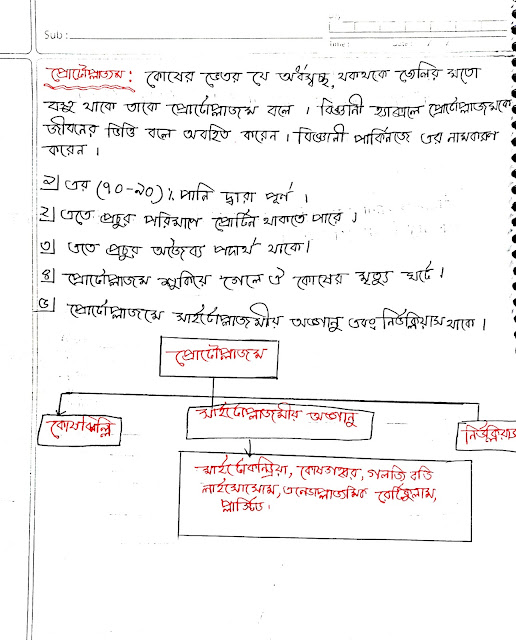 Sub :
Time :
প্রোটোপ্লাজম : কোষের ভেতর যে অর্ধস্বচ্ছ, থকথকে জেলির মতো
বস্তু থাকে তাকে প্রোটোপ্লাজম বলে । বিজ্ঞানী হাক্সলে প্রোটোপ্লাজমকে
জীবনের ভিত্তি বলে অবহিত করেন । বিজ্ঞানী পার্কিনজে এর নামকরণ
করেন ।
১| এর (৭০-৯০)% পানি দ্বারা পূর্ণ ।
২| এতে প্রচুর পরিমাণে প্রোটিন থাকতে পারে ।
৩| এতে প্রচুর অজৈব্য পদার্থ থাকে।
৪| প্রোটোপ্লাজম শুকিয়ে গেলে ঐ কোষের মৃত্যু ঘটে ।
৫| প্রোটোপ্লাজমে সাইটোপ্লাজমীয় অঙ্গানু এবং নিউক্লিয়াস থাকে ।
প্রোটোপ্লাজম
কোষঝিল্লি
সাইটোপ্লাজমীয় অঙ্গানু
নিউক্লিয়াস
মাইটোকন্ড্রিয়া, কোষগহ্বর, গলজি বডি
লাইসোসোম, এনডোপ্লাজমিক রেটিকুলাম,
প্লাস্টিড ।